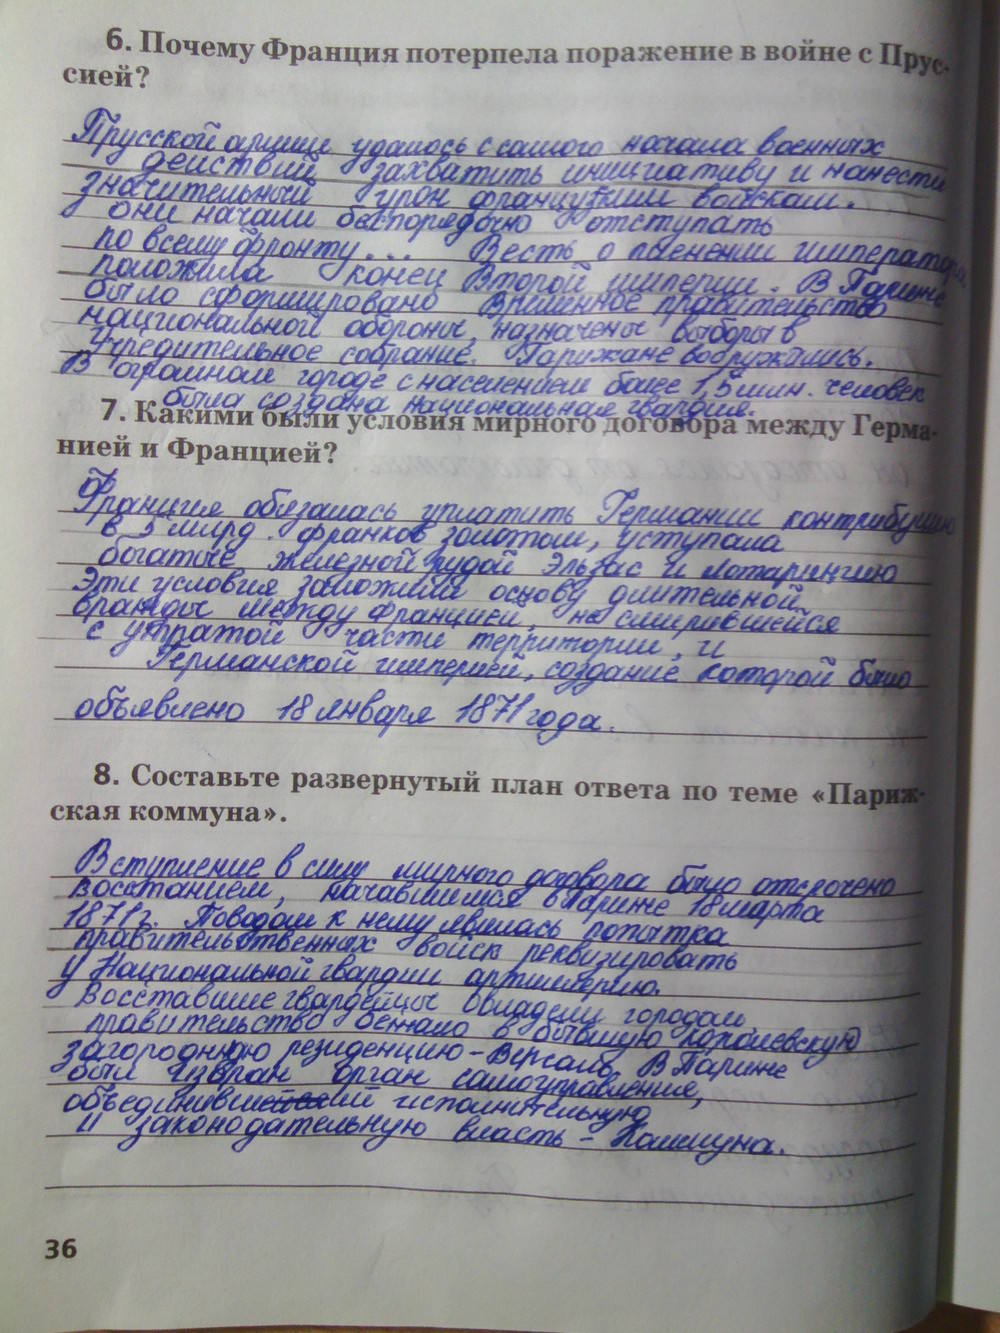 6. Почему Франция потерпела поражение в войне с Прус-
сией?
Прусской армии удалось с самого начала военных
действий захватить инициативу и нанести
значительный урон французским войскам.
Они начали беспорядочно отступать
по всему фронту... Весть о пленении императора
положила конец Второй империи. В Париже
было сформировано Временное правительство
национальной обороны, назначены выборы в
Учредительное собрание. Парижане вооружились.
В огромном городе с населением более 1,5 млн. человек
была создана национальная гвардия.
7. Какими были условия мирного договора между Герма-
нией и Францией?
Франция обязалась уплатить Германии контрибуцию
в 5 млрд. франков золотом, уступала
богатые железной рудой Эльзас и Лотарингию
Эти условия заложили основу длительной
вражды между Францией, не смирившейся
с утратой части территории, и
Германской империей, создание которой было
объявлено 18 января 1871 года.
8. Составьте развернутый план ответа по теме «Париж-
ская коммуна».
Вступление в силу мирного договора было отсрочено
восстанием, начавшимся в Париже 18 марта
1871 г. Поводом к нему явилась попытка
правительственных войск реквизировать
у Национальной гвардии артиллерию.
Восставшие гвардейцы овладели городом
правительство бежало в бывшую королевскую
загородную резиденцию – Версаль. В Париже
был избран орган самоуправления,
объединивший исполнительную
и законодательную власть – Коммуна.
36